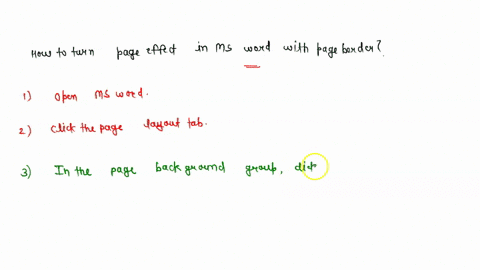 How to turn page effect in MS word with page border?
1) Open MS word.
2) click the page layout tab.
3) In the page background group,